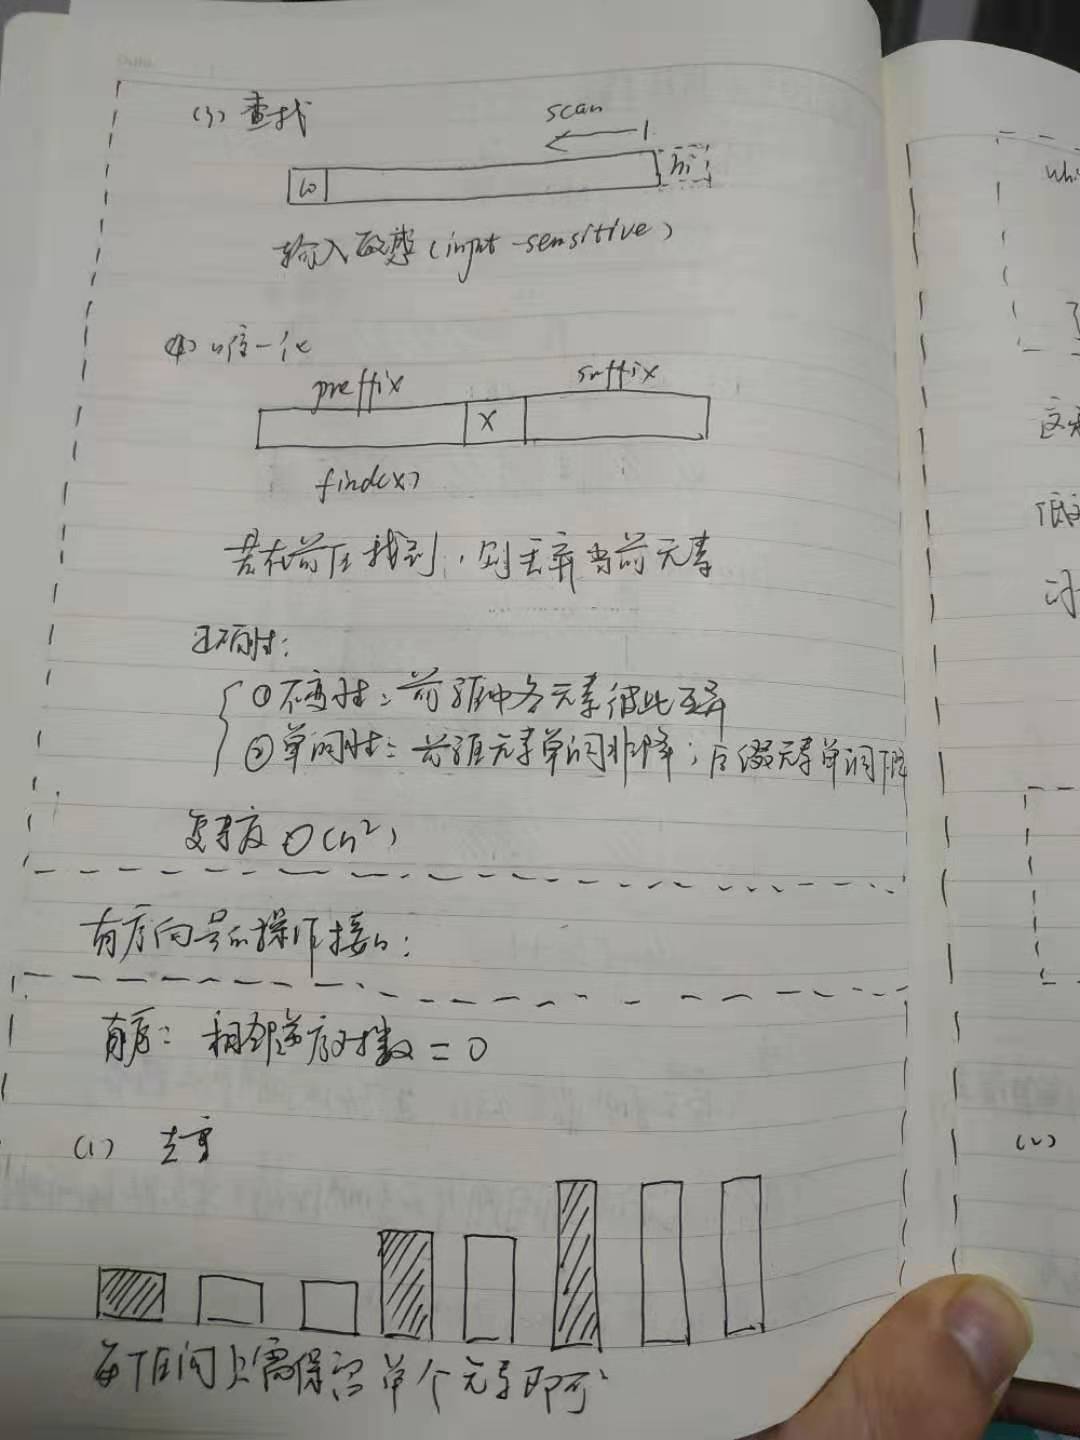 (3) 查找
scan
lo
hi
输入敏感(input-sensitive)
(4) 唯一化
preffix
suffix
X
find(x)
若在前区找到,则丢弃当前元素
正确性:
①不变性:前缀中各元素彼此互异
②单调性:前缀元素单调非降;后缀元素单调下降
复杂度 O(n²)
有序向量的操作接口:
有序:相邻逆序对数 = 0
(1) 去重
每个区间只需保留单个元素即可
whi
这
低
(2)